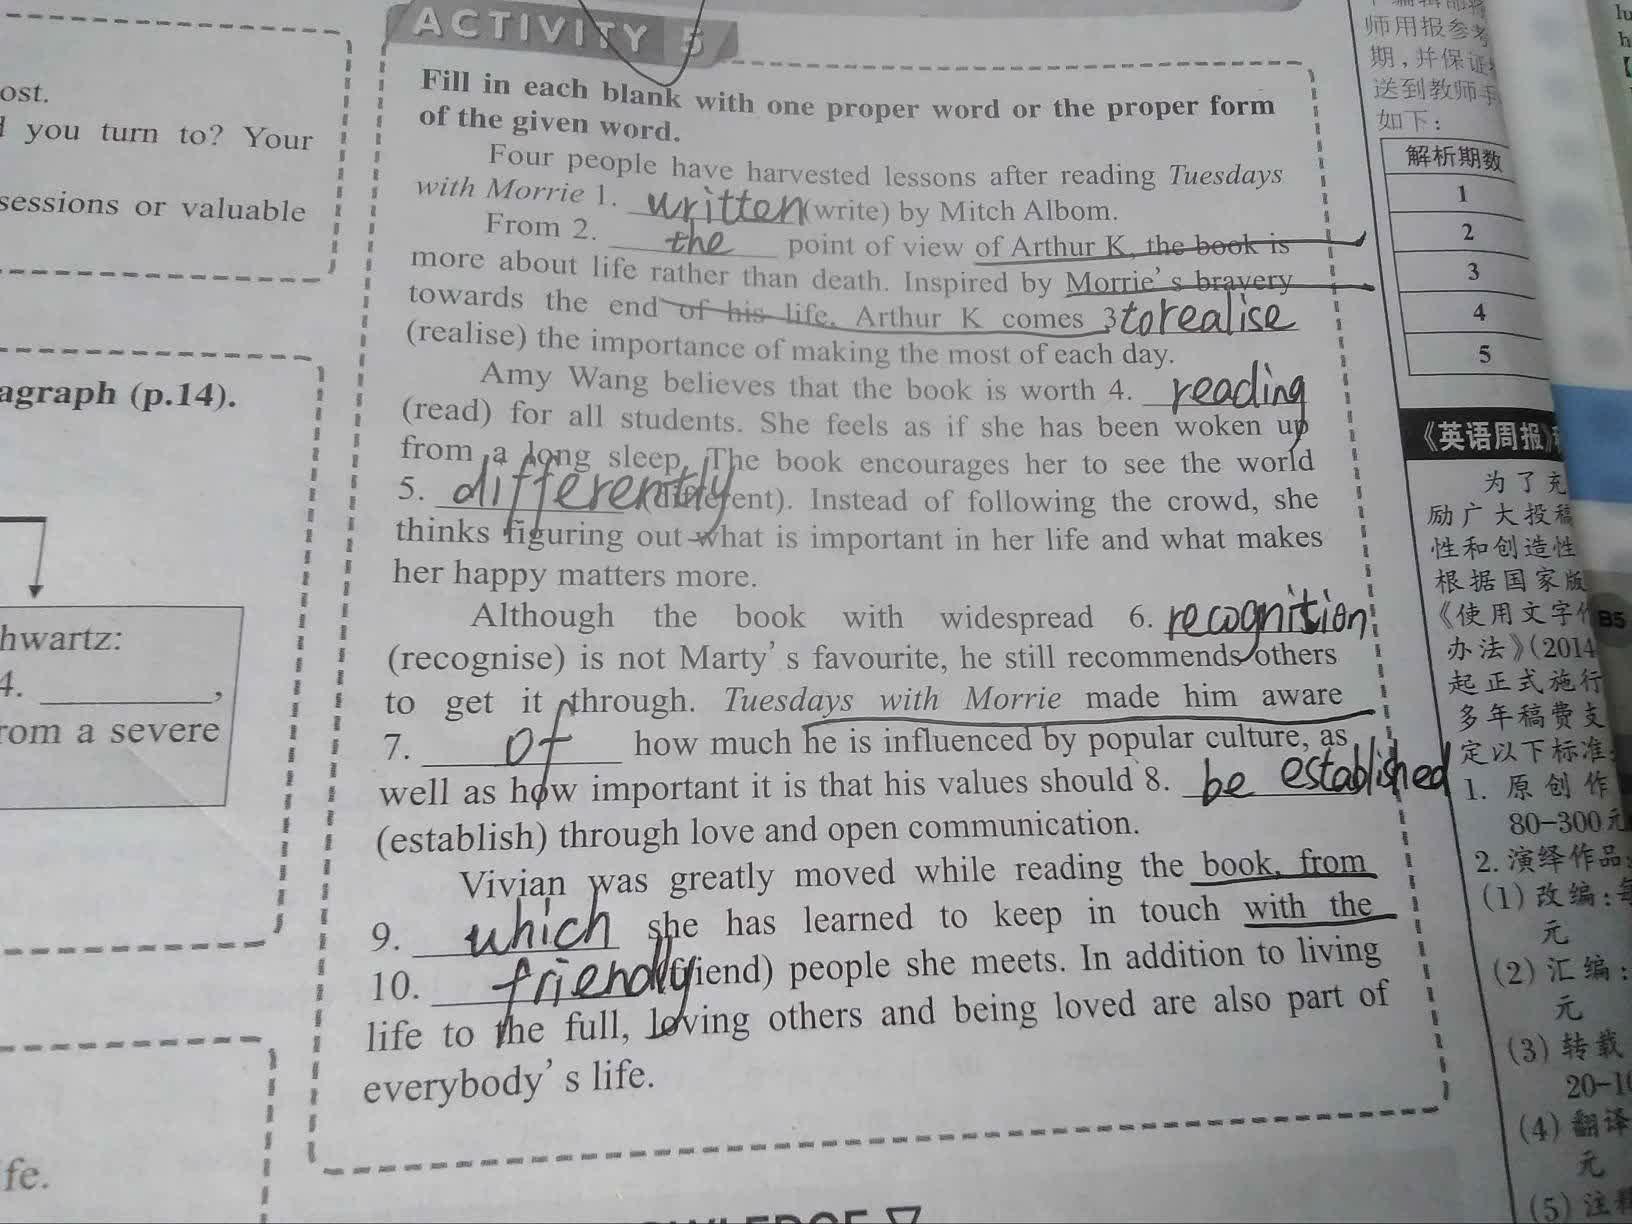 ost.
you turn to? Your
sessions or valuable
agraph (p.14).
hwartz:
4. ________,
rom a severe
fe.
ACTIVITY 5
Fill in each blank with one proper word or the proper form
of the given word.
Four people have harvested lessons after reading Tuesdays
with Morrie 1. written (write) by Mitch Albom.
From 2. the point of view of Arthur K, the book is
more about life rather than death. Inspired by Morrie's bravery
towards the end of his life, Arthur K comes 3 to realise
(realise) the importance of making the most of each day.
Amy Wang believes that the book is worth 4. reading
(read) for all students. She feels as if she has been woken up
from a long sleep. The book encourages her to see the world
5. differently (different). Instead of following the crowd, she
thinks figuring out what is important in her life and what makes
her happy matters more.
Although the book with widespread 6. recognition
(recognise) is not Marty's favourite, he still recommends others
to get it through. Tuesdays with Morrie made him aware
7. of how much he is influenced by popular culture, as
well as how important it is that his values should 8. be established
(establish) through love and open communication.
Vivian was greatly moved while reading the book, from
9. which she has learned to keep in touch with the
10. friendly (friend) people she meets. In addition to living
life to the full, loving others and being loved are also part of
everybody's life.
师用报参考
期,并保证
送到教师手
如下:
解析期数
1
2
3
4
5
《英语周报》
为了充
励广大投稿
性和创造性
根据国家版
《使用文字作
办法》(2014
起正式施行
多年稿费支
定以下标准:
1. 原创作
80-300元
2. 演绎作品:
(1) 改编:每
元
(2) 汇编:
元
(3) 转载
20-10
(4) 翻译
元
(5) 注释
B5